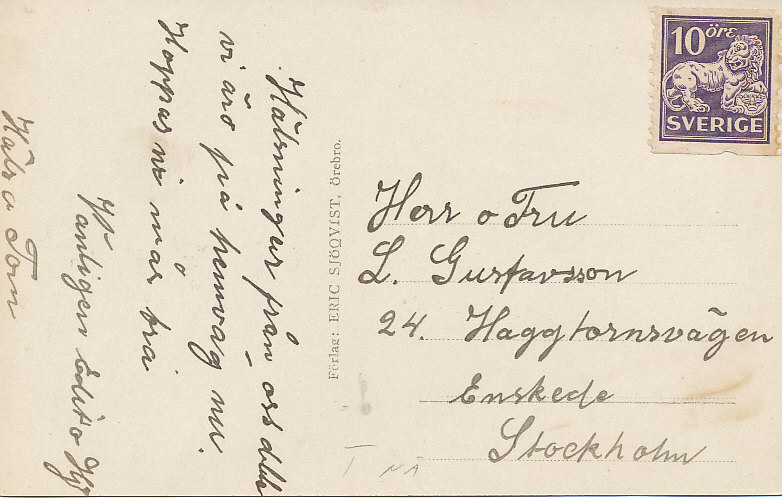 Hälsningar från oss
vi äro på hemväg nu.
Hoppas ni mår bra
Vänligen Edit o
Hälsa Torn
Förlag: ERIC SJÖQVIST, Örebro.
10 öre
SVERIGE
Herr o Fru
L. Gustavsson
24. Haggtornsvägen
Enskede
Stockholm